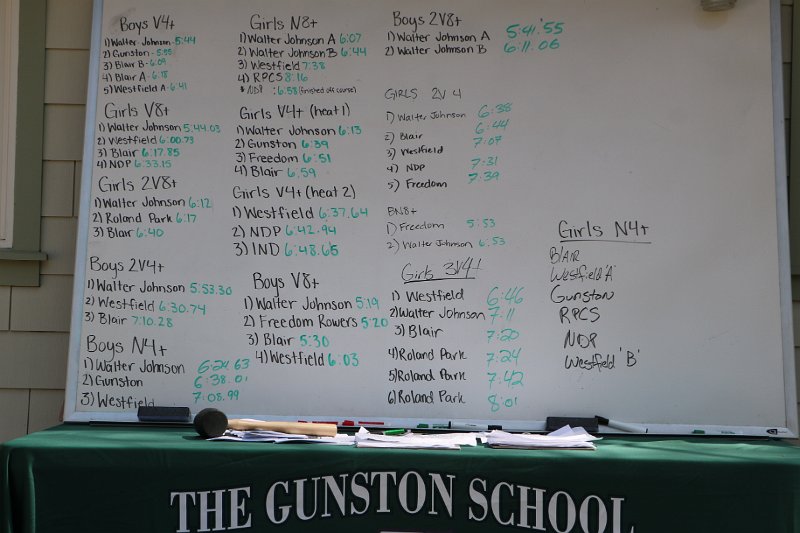 Boys V4+
1) Walter Johnson - 5:44
2) Gunston - 5:55
3) Blair B - 6:09
4) Blair A - 6:18
5) Westfield A - 6:41
Girls V8+
1) Walter Johnson 5:44.03
2) Westfield 6:00.73
3) Blair 6:17.85
4) NDP 6:33.15
Girls 2V8+
1) Walter Johnson 6:12
2) Roland Park 6:17
3) Blair 6:40
Boys 2V4+
1) Walter Johnson 5:53.30
2) Westfield 6:30.74
3) Blair 7:10.28
Boys N4+
1) Walter Johnson 6:24.63
2) Gunston 6:38.01
3) Westfield 7:08.99
Girls N8+
1) Walter Johnson A 6:07
2) Walter Johnson B 6:44
3) Westfield 7:38
4) RPCS 8:16
* NDP : 6:58 (finished off course)
Girls V4+ (heat 1)
1) Walter Johnson 6:13
2) Gunston 6:39
3) Freedom 6:51
4) Blair 6:59
Girls V4+ (heat 2)
1) Westfield 6:37.64
2) NDP 6:42.94
3) IND 6:48.65
Boys V8+
1) Walter Johnson 5:19
2) Freedom Rowers 5:20
3) Blair 5:30
4) Westfield 6:03
Boys 2V8+
1) Walter Johnson A 5:41.55
2) Walter Johnson B 6:11.06
GIRLS 2V 4
1) Walter Johnson 6:38
2) Blair 6:44
3) Westfield 7:07
4) NDP 7:31
5) Freedom 7:39
BN8+
1) Freedom 5:53
2) Walter Johnson 6:53
Girls 3V4+
1) Westfield 6:46
2) Walter Johnson 7:11
3) Blair 7:20
4) Roland Park 7:24
5) Roland Park 7:42
6) Roland Park 8:01
Girls N4+
BLAIR
Westfield 'A'
Gunston
RPCS
NDP
Westfield 'B'
THE GUNSTON SCHOOL